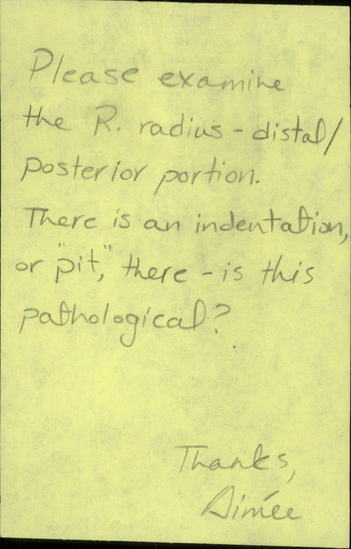 Please examine
the R. radius - distal/
posterior portion.
There is an indentation,
or "pit," there - is this
pathological?
Thanks,
Aimée